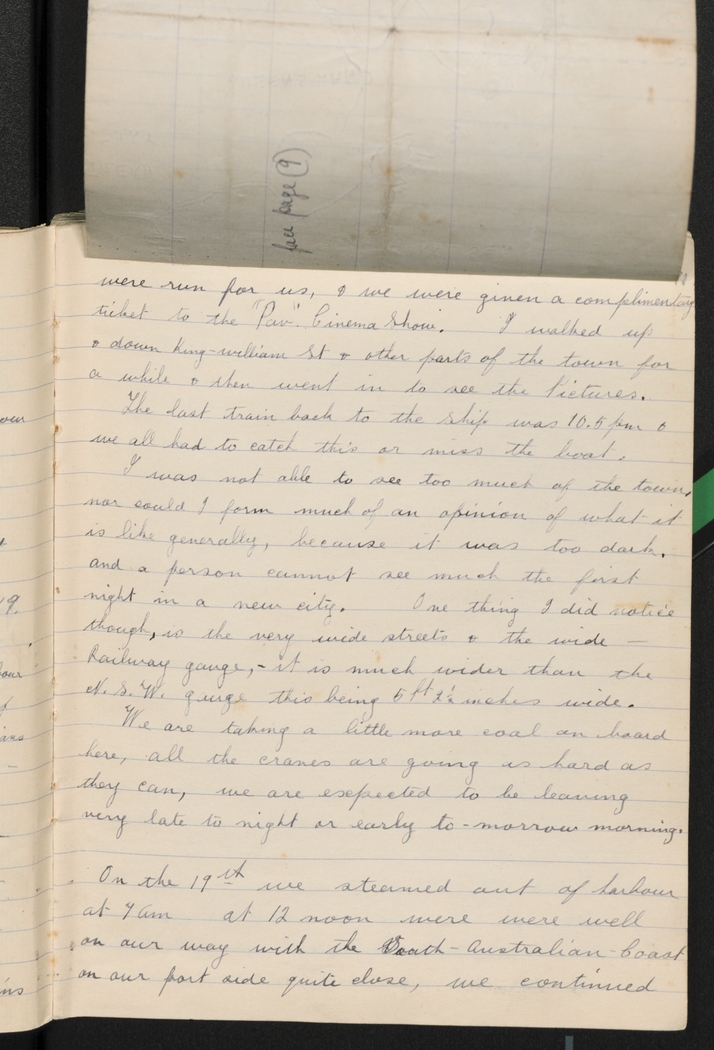 see page (9)
were run for us, & we were given a complimentary
ticket to the "Pav". Cinema Show. I walked up
& down King-william St & other parts of the town for
a while & then went in to see the Pictures.
The last train back to the ship was 10.5 pm &
we all had to catch this or miss the boat.
I was not able to see too much of the town,
nor could I form much of an opinion of what it
is like generally, because it was too dark.
and a person cannot see much the first
night in a new city. One thing I did notice
though, is the very wide streets & the wide —
Railway gauge, - it is much wider than the
N.S.W. guage this being 5 ft inches wide.
We are taking a little more coal on board
here, all the cranes are going is hard as
they can, we are expected to be leaving
very late to night or early to-morrow morning.
On the 19th we steamed out of harbour
at 7 am at 12 noon were were well
on our way with the South-Australian-Coast
on our port side quite close, we continued